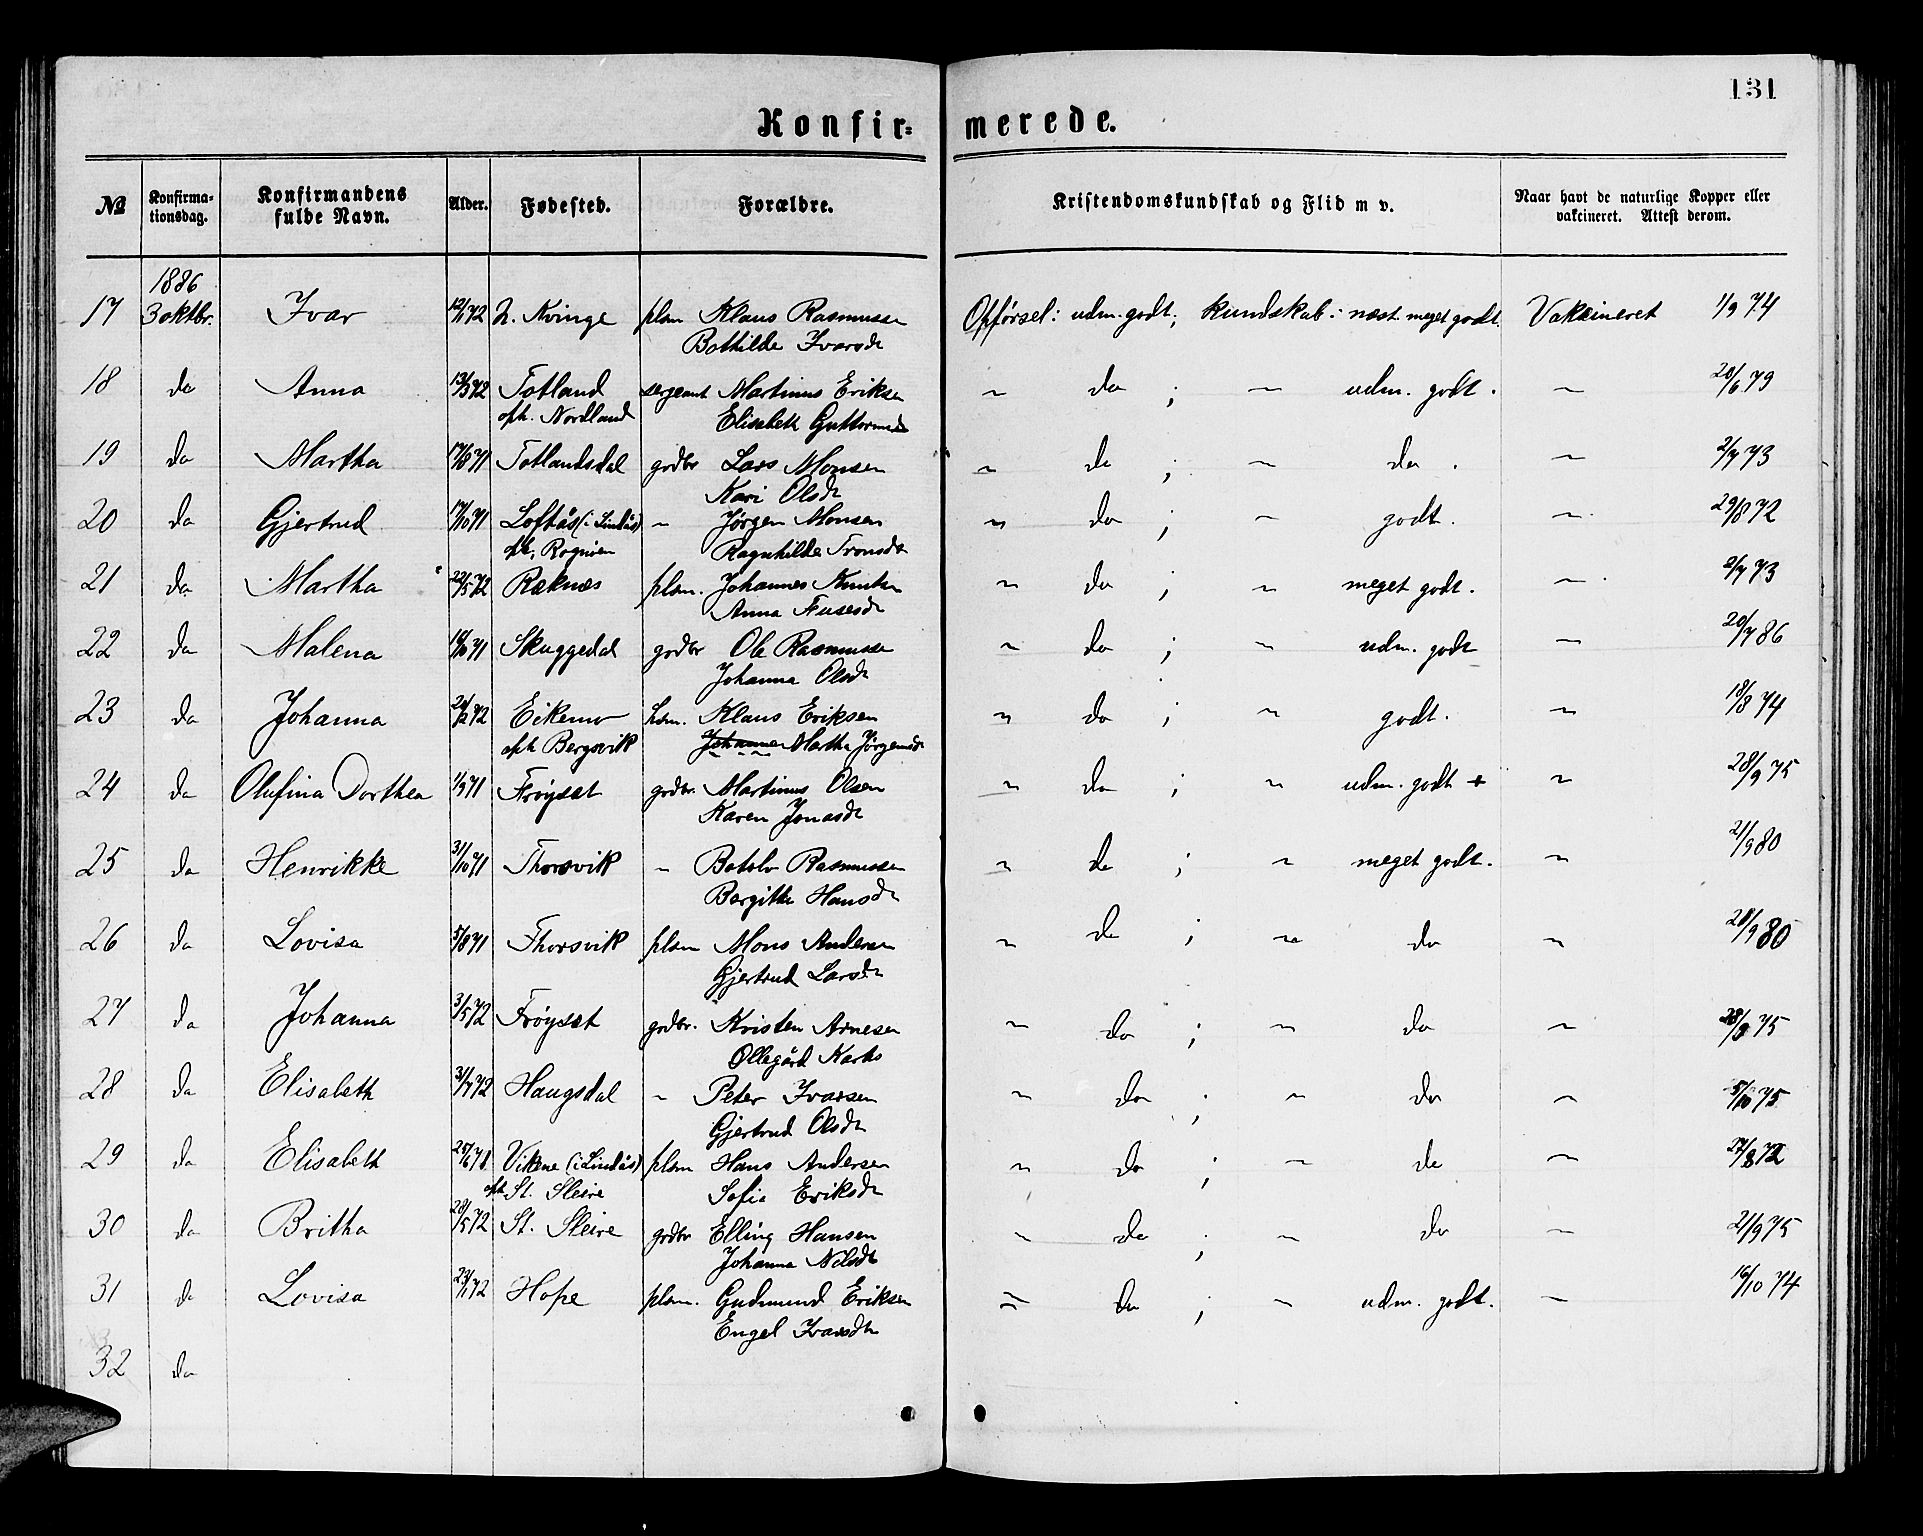 131
Konfir= merede.
№ Konfirma-tionsdag. Konfirmandens fulde Navn. Alder. Fødested. Forældre. Kristendomskundskab og Flid m v. Naar havt de naturlige Kopper eller vakcineret. Attest derom.
1886
17 3 oktbr. Ivar 12/1 72 N. Kvinge plsm Klaus Rasmussen Opførsel: udm. godt; kundskab: næst meget godt. Vakcineret 1/9 74
Bothilde Ivarsdr
18 do Anna 13/3 72 Totland sergeant Martinus Eriksen ~ do ; ~ udm. godt. ~ 20/6 79
oph. Nordland Elisabeth Guttormsdr
19 do Martha 17/8 71 Totlandsdal grdbr Lars Monsen ~ do ; ~ do . ~ 2/7 73
Kari Olsdr
20 do Gjertrud 17/10 71 Loftås (i Lindås) ~ Jørgen Monsen ~ do ; ~ godt. ~ 29/8 72
oph. Rognien Ragnhilde Tronsdr
21 do Martha 22/5 72 Reknes plsm. Johannes Knutsen ~ do ; ~ meget godt. ~ 2/7 73
Anna
22 do Malena 71 Skuggedal grdbr Ole Rasmussen ~ do ; ~ udm. godt ~ 20/7 86
Johanna Olsdr
23 do Johanna 72 Eikemo hsm. Klaus Eriksen ~ do ; ~ godt. ~ 18/8 74
oph Bergsvik Johanne Martha Jørgensdr
24 do Olufina Dorthea 1/9 71 Frøyset grdbr. Martinus Olsen ~ do ; ~ udm. godt + ~ 28/9 75
Karen Jonasdr
25 do Henrikke 31/10 71 Thorsvik ~ Botolv Rasmussen ~ do ; ~ meget godt. ~ 21/9 80
Bergitte Hansdr
26 do Lovisa 5/8 71 Thorsvik plsm Mons Andersen ~ do ; ~ do ~ 20/9 80
Gjertrud Larsdr
27 do Johanna 3/5 72 Frøyset grdbr. Kristen Arnesen ~ do ; ~ do ~ 28/9 75
Ollegård
28 do Elisabeth 31/7 72 Haugsdal ~ Peter Ivarsen ~ do ; ~ do ~ 5/10 75
Gjertrud Olsdr
29 do Elisabeth Vikene (i Lindås) plsm Hans Andersen ~ do ; ~ do ~ 27/8 72
oph St. Sleire Sofie Eriksdr
30 do Britha 20/5 72 St. Sleire grdbr Elling Hansen ~ do ; ~ do ~ 21/9 75
Johanna Nilsdr
31 do Lovisa 23/1 72 Hope plsm. Gudmund Eriksen ~ do ; ~ udm. godt. ~ 16/10 74
Engel Ivarsdtr
32 do